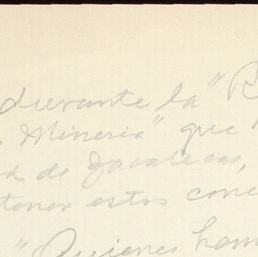 durante la "R
Mineria" que
d de Zacatecas,
estos conc
"Quienes hem